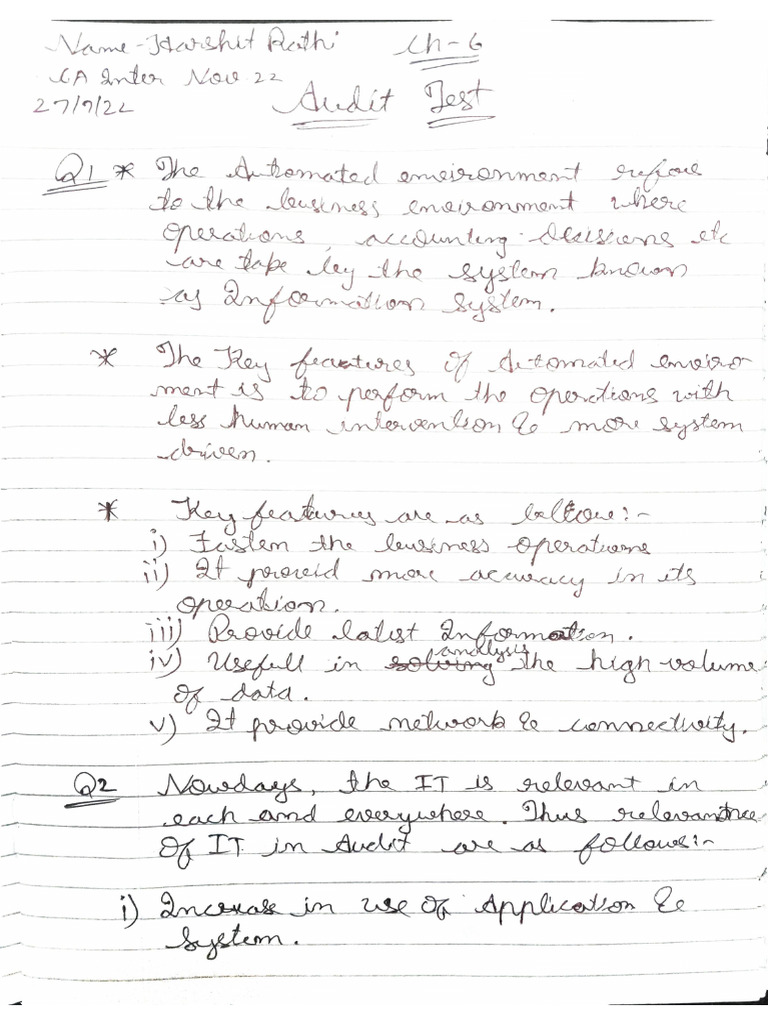 Name - Harshit Rathi Ch-6
CA Inter Nov 22
27/7/22 Audit Test
Q1 * The Automated environment refore
to the business environment where
operations, accounting decisions etc
are take by the system known
as Information system.
* The Key features of Automated enviro
ment is to perform the operations with
less human intervention & more system
driven.
* Key features are as bellow:-
i) Fastem the business operations
ii) It provid more accuracy in its
operation.
iii) Provide latest Information.
analysis
iv) Usefull in solving the high volume
of data.
v) It provide network & connectivity.
Q2 Nowdays, the IT is relevant in
each and everywhere. Thus relevantnce
of IT in Audit are as follows:-
i) Increase in use of Application &
System.